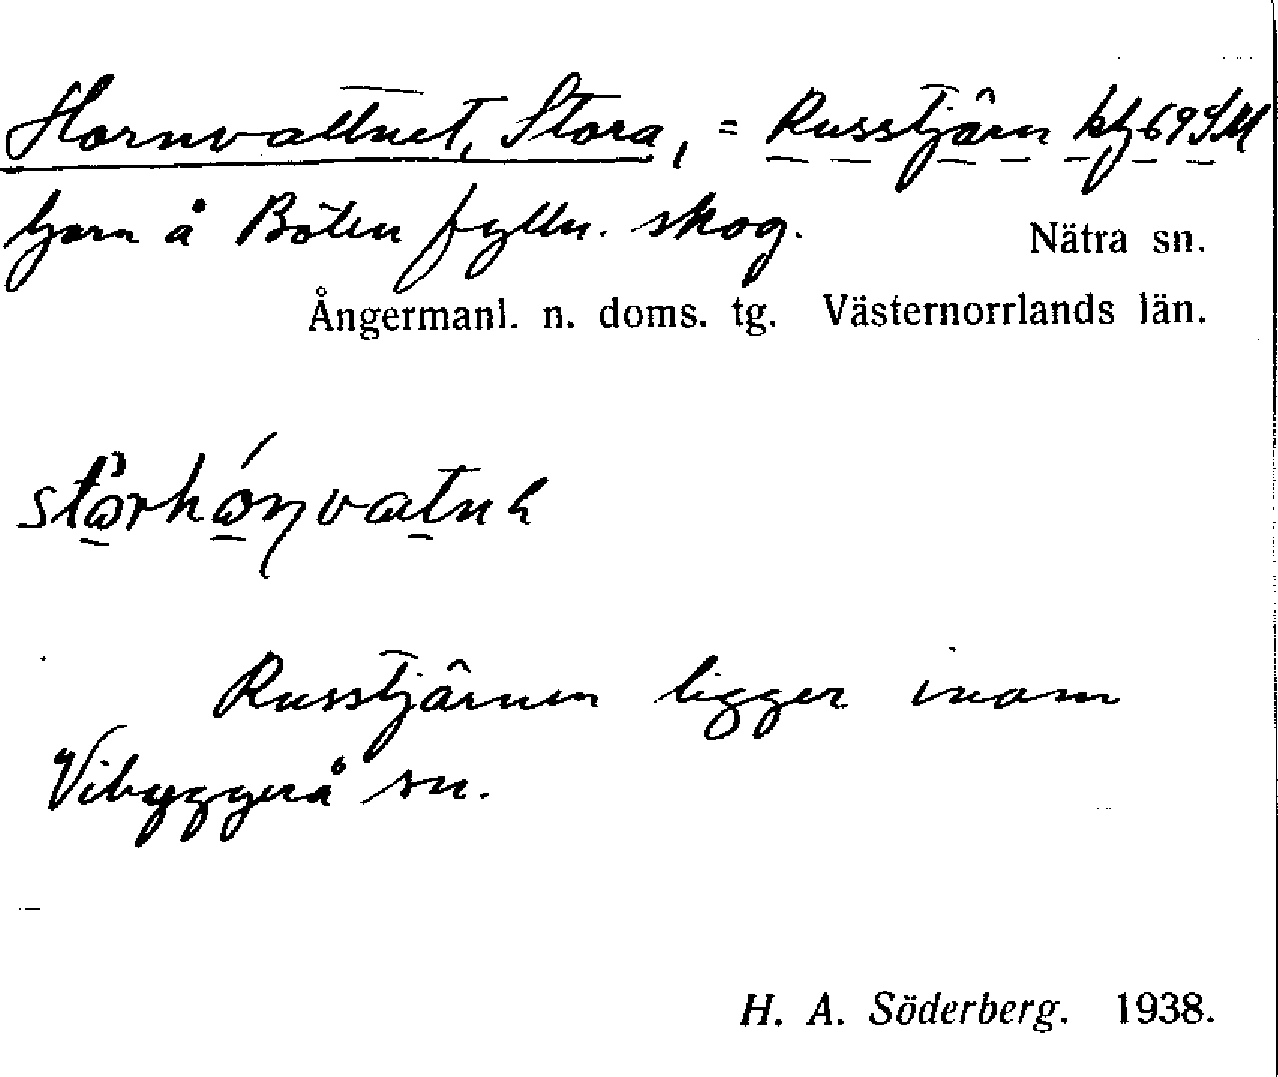 Hornvattnet, Stora, = Russtjärn kbl 69 SM
tjärn å Bölen fylln. skog. Nätra sn.
Ångermanl. n. doms. tg. Västernorrlands län.
Russtjärnen ligger inom
Vibyggerå sn.
H. A. Söderberg. 1938.